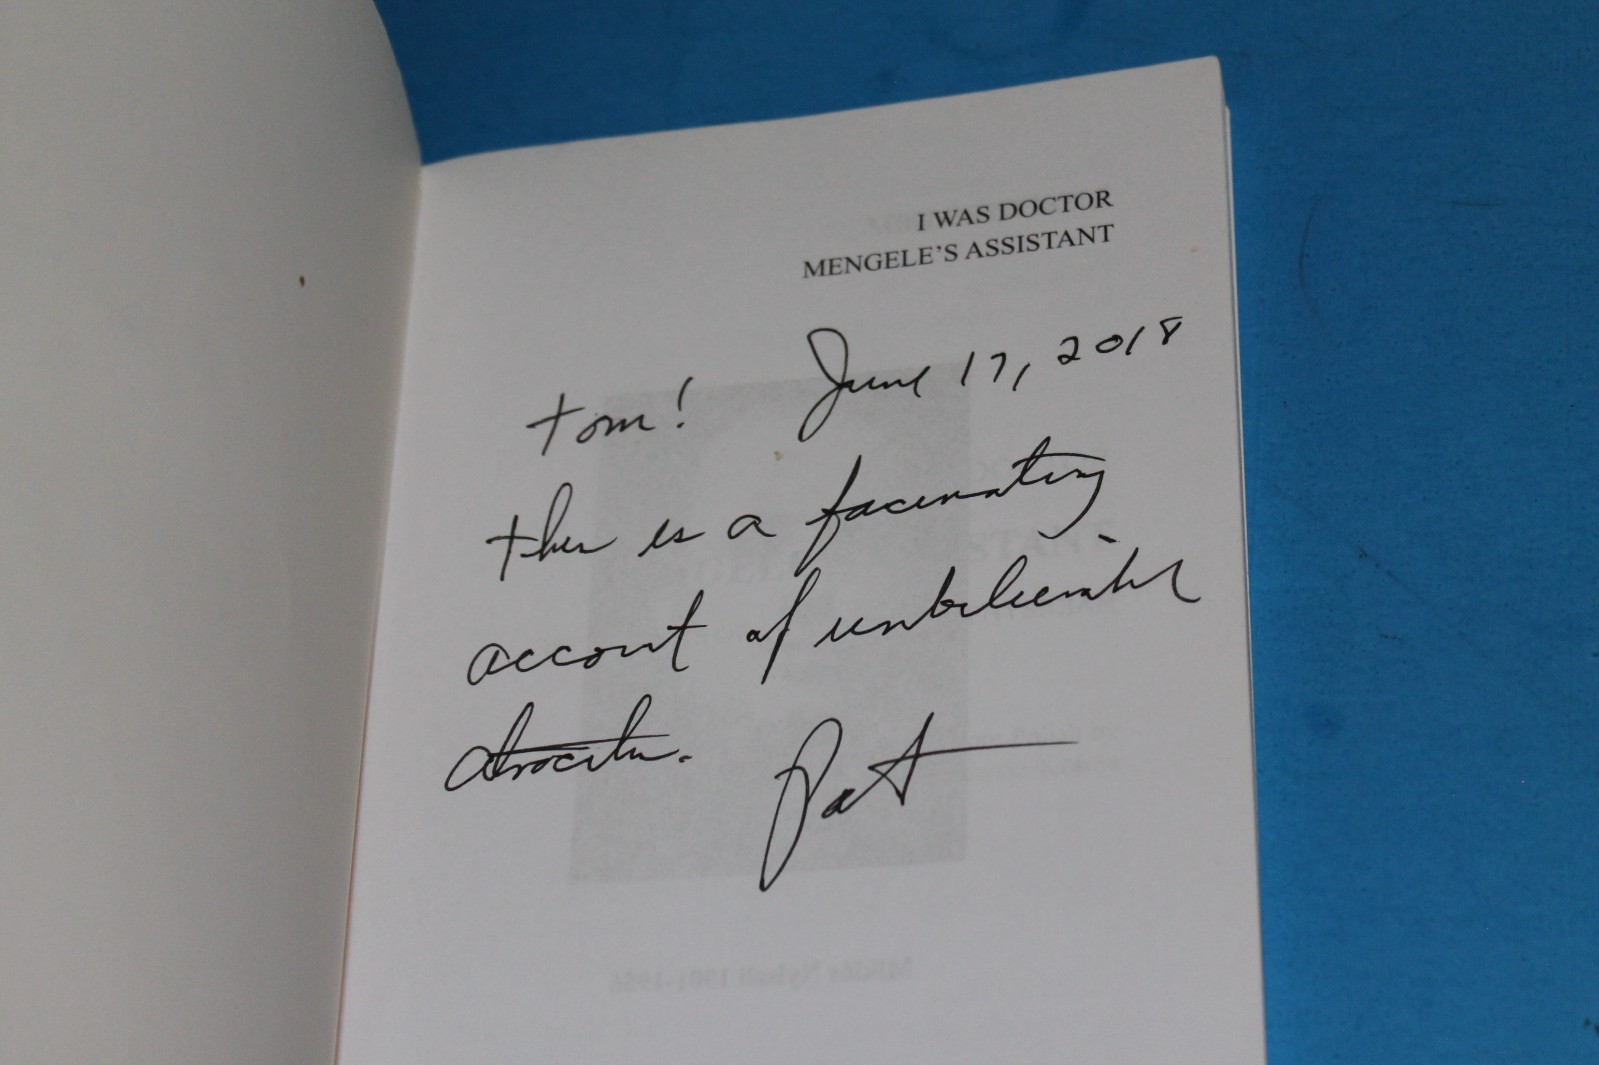 I WAS DOCTOR
MENGELE'S ASSISTANT
June 17, 2018
Tom!
this is a facinating
account of unbelievable
atrocities.
Pat
Miklós Nyiszli 1901-1956